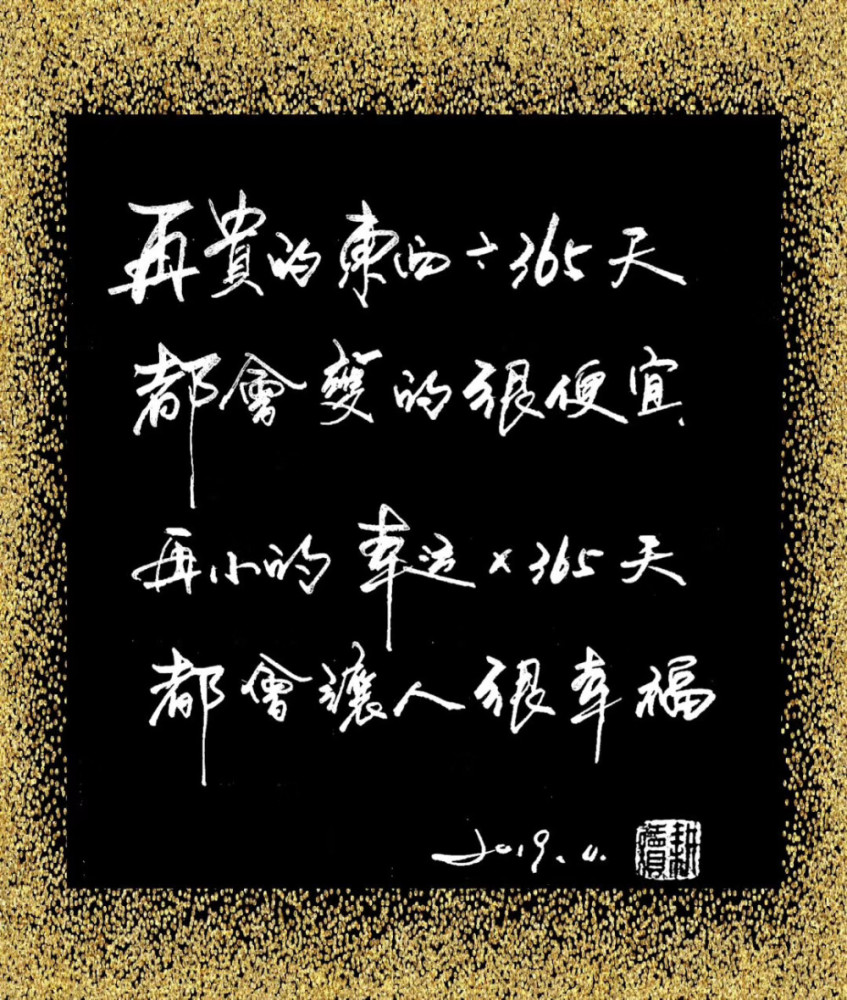 再貴的東西÷365天
都會變的很便宜
再小的幸运×365天
都會讓人很幸福
2019.11.